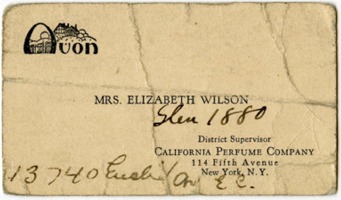 Avon
MRS. ELIZABETH WILSON
Glen 1880
District Supervisor
CALIFORNIA PERFUME COMPANY
114 Fifth Avenue
New York, N.Y.
13740 Euclid Av E.C.